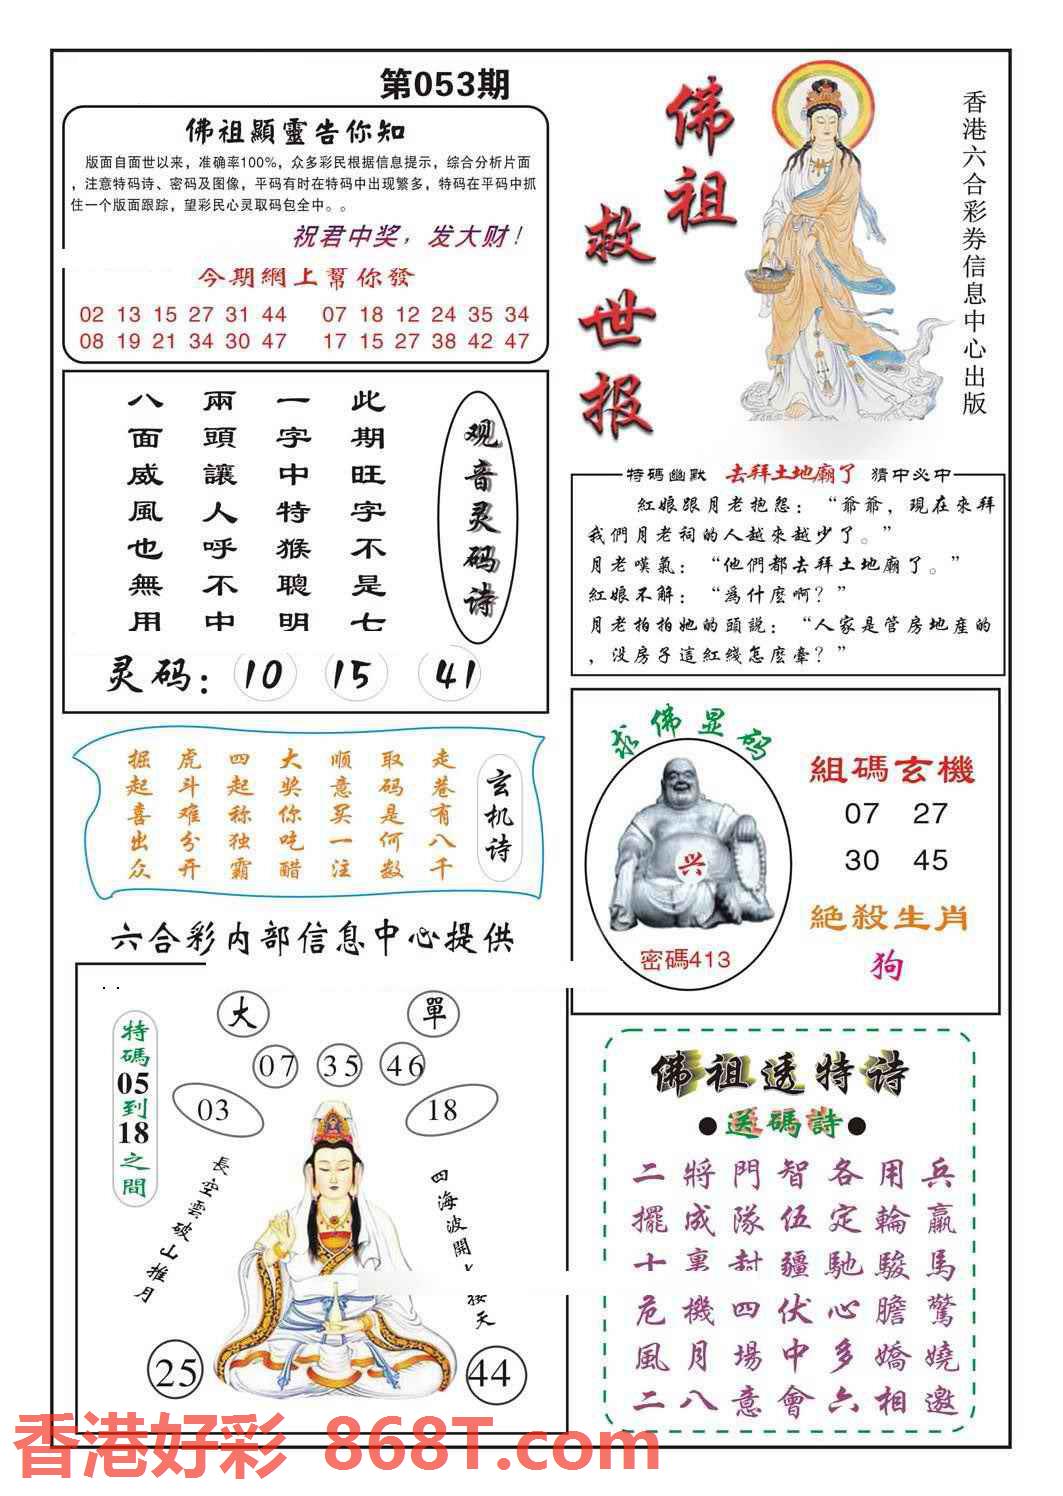 第053期
佛祖顯靈告你知
版面自面世以来，准确率100%，众多彩民根据信息提示，综合分析片面
，注意特码诗、密码及图像，平码有时在特码中出现繁多，特码在平码中抓
住一个版面跟踪，望彩民心灵取码包全中。。
祝君中奖，发大财！
今期網上幫你發
02 13 15 27 31 44 07 18 12 24 35 34
08 19 21 34 30 47 17 15 27 38 42 47
佛祖
救世报
香港六合彩券信息中心出版
观音灵码诗
此期旺字不是七
一字中特猴聰明
兩頭讓人呼不中
八面威風也無用
灵码：10 15 41
特碼幽默 去拜土地廟了 猜中必中
紅娘跟月老抱怨：“爺爺，現在來拜
我們月老祠的人越來越少了。”
月老嘆氣：“他們都去拜土地廟了。”
紅娘不解：“爲什麼啊？”
月老拍拍她的頭説：“人家是管房地産的
，没房子這紅綫怎麽牽？”
玄机诗
走巷有八千
取码是何数
顺意买一注
大奖你吃醋
四起称独霸
虎斗难分开
掘起喜出众
求佛显码
兴
密碼413
組碼玄機
07 27
30 45
絶殺生肖
狗
六合彩内部信息中心提供
大 單
07 35 46
03 18
特碼05到18之間
長空雲破山推月
四海波開
接天
25 44
佛祖透特诗
●送碼詩●
二將門智各用兵
擺成隊伍定輪贏
十裏封疆馳駿馬
危機四伏心膽驚
風月場中多嬌嬈
二八意會六相邀
香港好彩 868T.com